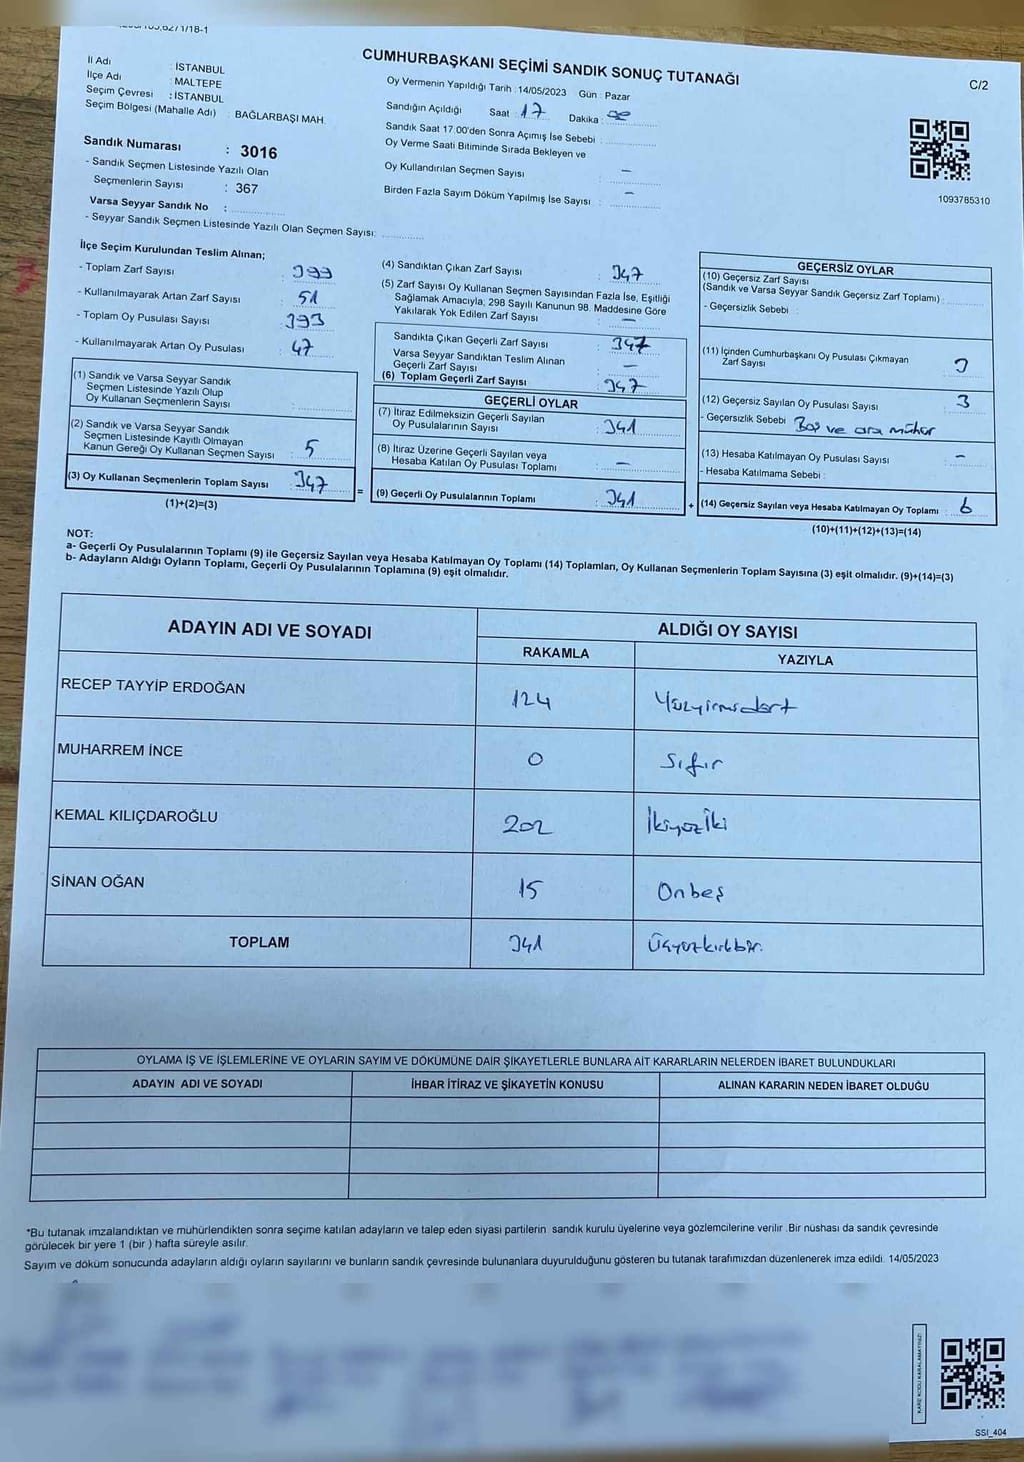 CUMHURBAŞKANI SEÇİMİ SANDIK SONUÇ TUTANAĞI
C/2
İl Adı : İSTANBUL
İlçe Adı : MALTEPE
Seçim Çevresi : İSTANBUL
Seçim Bölgesi (Mahalle Adı) : BAĞLARBAŞI MAH.
Sandık Numarası : 3016
- Sandık Seçmen Listesinde Yazılı Olan
Seçmenlerin Sayısı : 367
Varsa Seyyar Sandık No :
- Seyyar Sandık Seçmen Listesinde Yazılı Olan Seçmen Sayısı:
Oy Vermenin Yapıldığı Tarih : 14/05/2023 Gün : Pazar
Sandığın Açıldığı Saat : 17 Dakika :
Sandık Saat 17:00'den Sonra Açımış İse Sebebi :
Oy Verme Saati Bitiminde Sırada Bekleyen ve
Oy Kullandırılan Seçmen Sayısı : -
Birden Fazla Sayım Döküm Yapılmış İse Sayısı : -
1093785310
İlçe Seçim Kurulundan Teslim Alınan;
- Toplam Zarf Sayısı : 399
- Kullanılmayarak Artan Zarf Sayısı : 51
- Toplam Oy Pusulası Sayısı : 393
- Kullanılmayarak Artan Oy Pusulası : 47
(1) Sandık ve Varsa Seyyar Sandık
Seçmen Listesinde Yazılı Olup
Oy Kullanan Seçmenlerin Sayısı :
(2) Sandık ve Varsa Seyyar Sandık
Seçmen Listesinde Kayıtlı Olmayan
Kanun Gereği Oy Kullanan Seçmen Sayısı : 5
(3) Oy Kullanan Seçmenlerin Toplam Sayısı : 347
(1)+(2)=(3)
(4) Sandıktan Çıkan Zarf Sayısı : 347
(5) Zarf Sayısı Oy Kullanan Seçmen Sayısından Fazla İse, Eşitliği
Sağlamak Amacıyla; 298 Sayılı Kanunun 98. Maddesine Göre
Yakılarak Yok Edilen Zarf Sayısı : -
Sandıkta Çıkan Geçerli Zarf Sayısı : 347
Varsa Seyyar Sandıktan Teslim Alınan
Geçerli Zarf Sayısı : -
(6) Toplam Geçerli Zarf Sayısı : 347
GEÇERLİ OYLAR
(7) İtiraz Edilmeksizin Geçerli Sayılan
Oy Pusulalarının Sayısı : 341
(8) İtiraz Üzerine Geçerli Sayılan veya
Hesaba Katılan Oy Pusulası Toplamı : -
= (9) Geçerli Oy Pusulalarının Toplamı : 341
GEÇERSİZ OYLAR
(10) Geçersiz Zarf Sayısı
(Sandık ve Varsa Seyyar Sandık Geçersiz Zarf Toplamı) :
- Geçersizlik Sebebi :
(11) İçinden Cumhurbaşkanı Oy Pusulası Çıkmayan
Zarf Sayısı : 3
(12) Geçersiz Sayılan Oy Pusulası Sayısı : 3
- Geçersizlik Sebebi : Boş ve ara mühür
(13) Hesaba Katılmayan Oy Pusulası Sayısı : -
- Hesaba Katılmama Sebebi :
+ (14) Geçersiz Sayılan veya Hesaba Katılmayan Oy Toplamı : 6
(10)+(11)+(12)+(13)=(14)
NOT:
a- Geçerli Oy Pusulalarının Toplamı (9) ile Geçersiz Sayılan veya Hesaba Katılmayan Oy Toplamı (14) Toplamları, Oy Kullanan Seçmenlerin Toplam Sayısına (3) eşit olmalıdır. (9)+(14)=(3)
b- Adayların Aldığı Oyların Toplamı, Geçerli Oy Pusulalarının Toplamına (9) eşit olmalıdır.
ADAYIN ADI VE SOYADI ALDIĞI OY SAYISI
RAKAMLA YAZIYLA
RECEP TAYYİP ERDOĞAN 124 Yüzyirmidört
MUHARREM İNCE 0 Sıfır
KEMAL KILIÇDAROĞLU 202 İkiyüziki
SİNAN OĞAN 15 Onbeş
TOPLAM 341 Üçyüzkırkbir.
OYLAMA İŞ VE İŞLEMLERİNE VE OYLARIN SAYIM VE DÖKÜMÜNE DAİR ŞİKAYETLERLE BUNLARA AİT KARARLARIN NELERDEN İBARET BULUNDUKLARI
ADAYIN ADI VE SOYADI İHBAR İTİRAZ VE ŞİKAYETİN KONUSU ALINAN KARARIN NEDEN İBARET OLDUĞU
*Bu tutanak imzalandıktan ve mühürlendikten sonra seçime katılan adayların ve talep eden siyasi partilerin sandık kurulu üyelerine veya gözlemcilerine verilir. Bir nüshası da sandık çevresinde
görülecek bir yere 1 (bir) hafta süreyle asılır.
Sayım ve döküm sonucunda adayların aldığı oyların sayılarını ve bunların sandık çevresinde bulunanlara duyurulduğunu gösteren bu tutanak tarafımızdan düzenlenerek imza edildi. 14/05/2023
KARE KODU KARALAMAYINIZ!
SSI_404